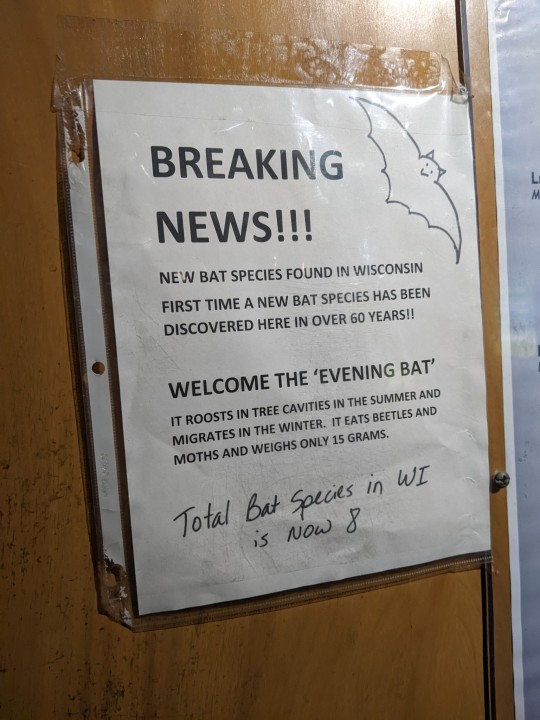 BREAKING
NEWS!!!
NEW BAT SPECIES FOUND IN WISCONSIN
FIRST TIME A NEW BAT SPECIES HAS BEEN
DISCOVERED HERE IN OVER 60 YEARS!!
WELCOME THE ‘EVENING BAT’
IT ROOSTS IN TREE CAVITIES IN THE SUMMER AND
MIGRATES IN THE WINTER. IT EATS BEETLES AND
MOTHS AND WEIGHS ONLY 15 GRAMS.
Total Bat Species in WI
is Now 8